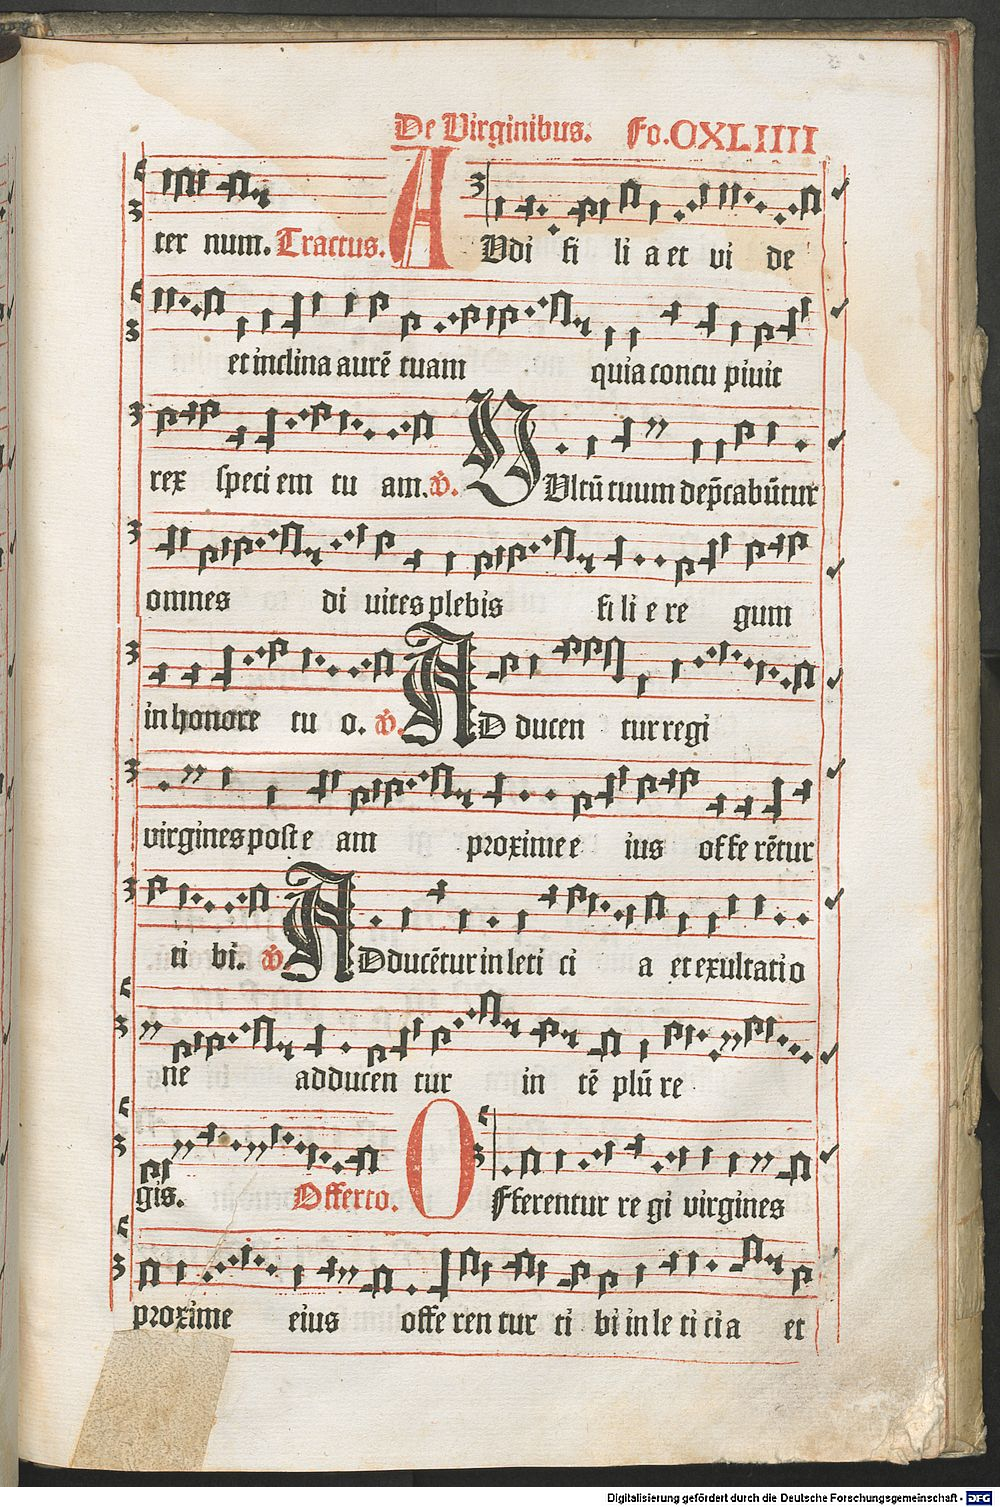 De Virginibus. Fo.CXLIIII
ter num. Tractus. A Udi fi li a et vi de
et inclina aurē tuam quia concu pivit
rex speci em tu am. ℣. V Ultū tuum dep̄cabūtur
omnes di vites plebis fi li e re gum
in honore tu o. ℣. A D ducen tur regi
virgines post e am proxime e ius offe rētur
ti bi. ℣. A Dducētur in leti ci a et exultatio
ne adducen tur in tē plū re
gis. Offerto. O Fferentur re gi virgines
proxime eius offe ren tur ti bi in le ti cia et
Digitalisierung gefördert durch die Deutsche Forschungsgemeinschaft - DFG